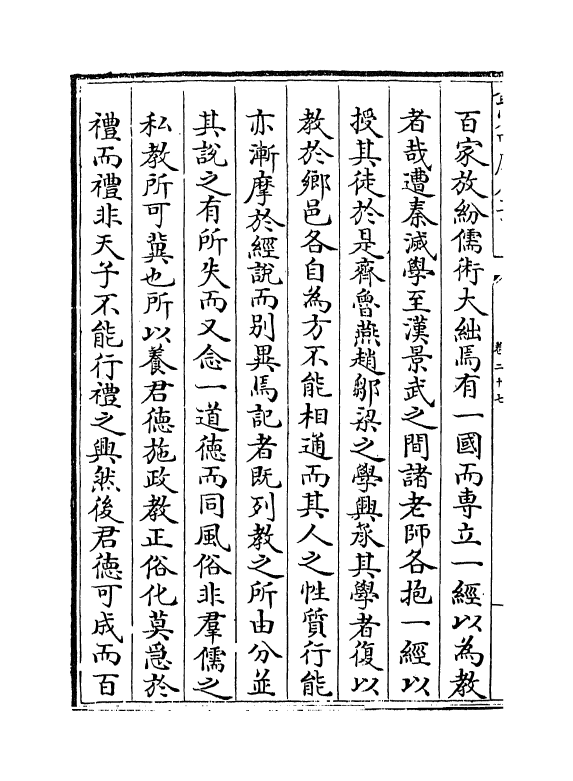 百家放紛儒術大絀焉有一國而専立一經以為教
者哉遭秦滅學至漢景武之間諸老師各抱一經以
授其徒於是齊魯燕趙鄒梁之學興承其學者復以
教於鄉邑各自為方不能相通而其人之性質行能
亦漸摩於經說而別異焉記者既列教之所由分並
其說之有所失而又念一道德而同風俗非羣儒之
私教所可冀也所以養君德施政教正俗化莫急於
禮而禮非天子不能行禮之興然後君德可成而百
卷二十七